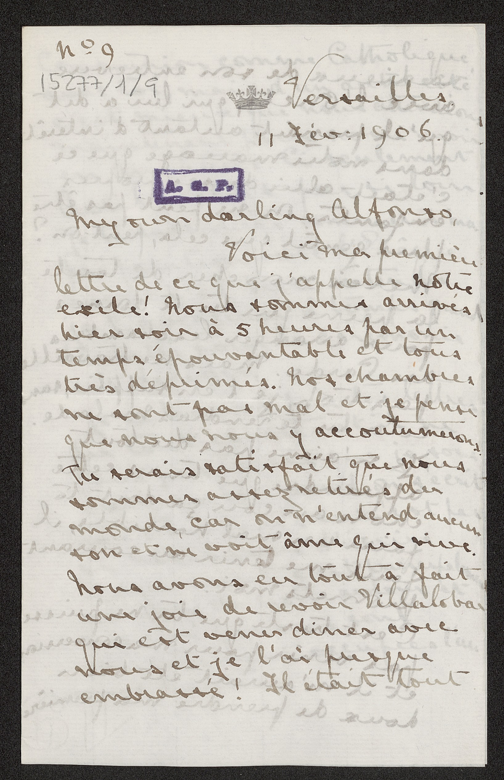 Nº 9
15277/1/9
Versailles
11 Fév: 1906.
A. G. P.
My own darling Alfonso,
Voici ma première
lettre de ce que j'appelle notre
exile! Nous sommes arrivés
hier soir à 5 heures par un
temps épouvantable et tous
très déprimés. Nos chambres
ne sont pas mal et je pense
que nous nous y accoutumerons.
Tu serais satisfait que nous
sommes assez retirés du
monde, car on n'entend aucun
son et ne voit âme qui vive.
Nous avons eu tout à fait
une joie de revoir Villalobar
qui est venu diner avec
nous et je l'ai presque
embrassé! Il était tout